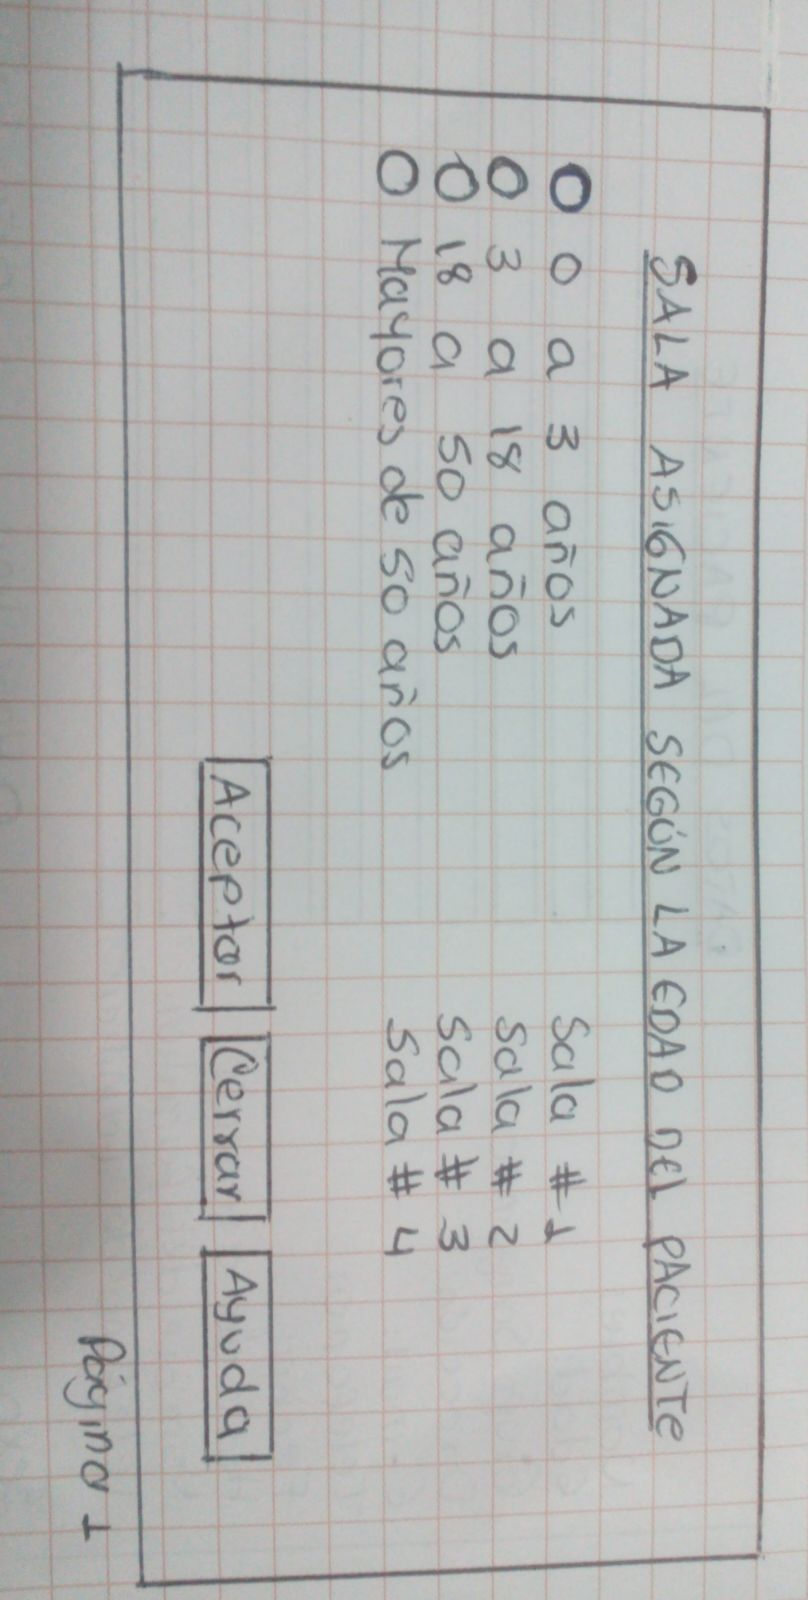 SALA ASIGNADA SEGÚN LA EDAD DEL PACIENTE
O 0 a 3 años Sala #1
O 3 a 18 años Sala #2
O 18 a 50 años Sala #3
O Mayores de 50 años Sala #4
Aceptar Cerrar Ayuda
Página 1